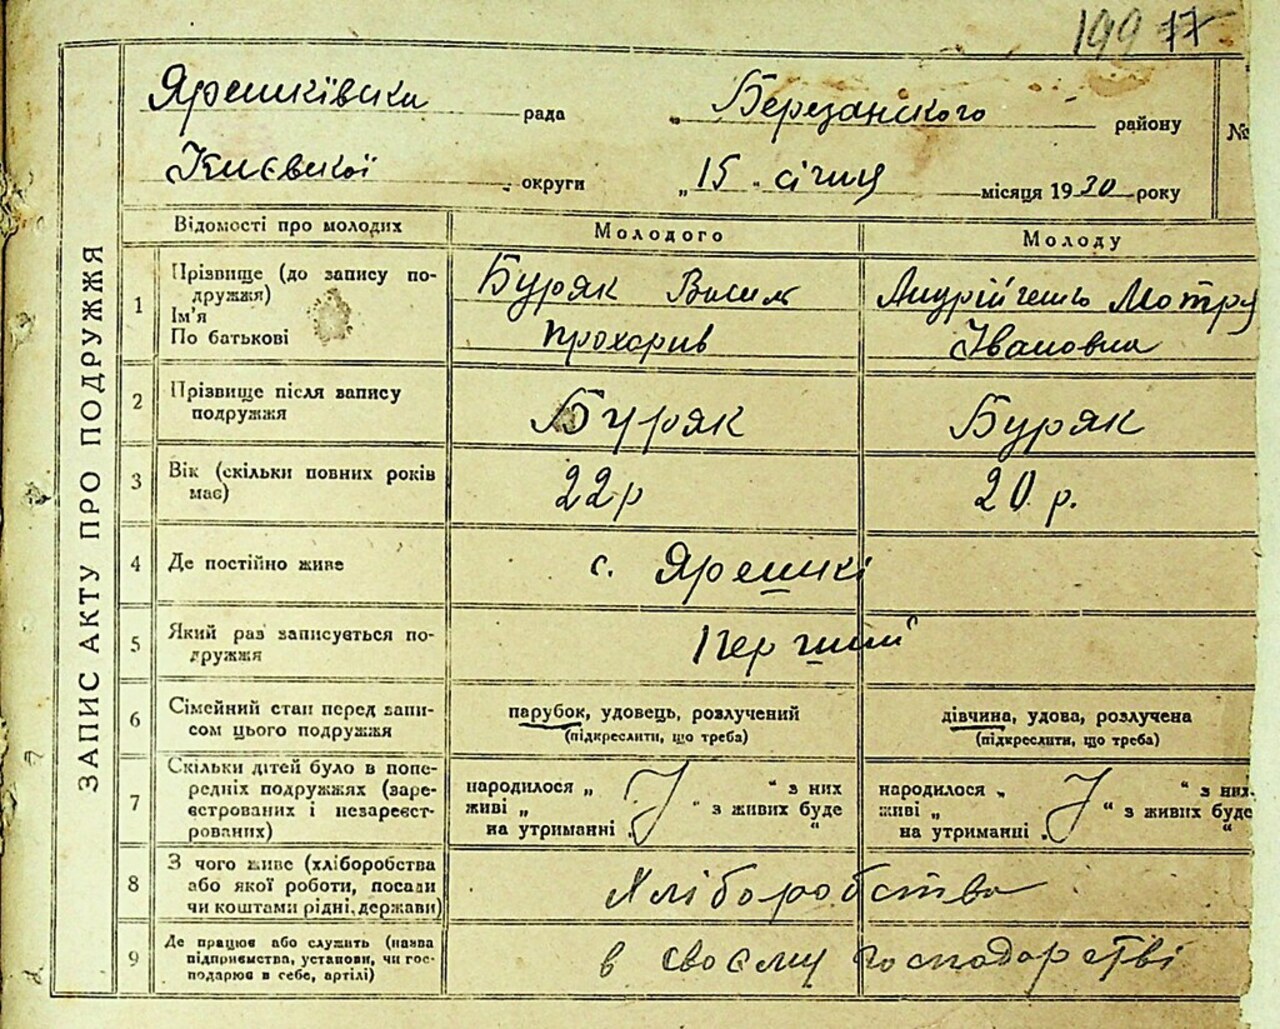 199 17
Ярешківська рада Березанского району
№
Києвскої округи „15„ січня місяця 1930 року
ЗАПИС АКТУ ПРО ПОДРУЖЖЯ
Відомості про молодих Молодого Молоду
1 Прізвище (до запису по-
дружжя)
Ім'я
По батькові
Буряк Василь
Прохорив
Андрійченко Мотря
Івановна
2 Прізвище після запису
подружжя
Буряк Буряк
3 Вік (скільки повних років
має)
22 р 20 р.
4 Де постійно живе с. Ярешки
5 Який раз записується по-
дружжя
Перший
6 Сімейний стан перед запи-
сом цього подружжя
парубок, удовець, розлучений
(підкреслити, що треба)
дівчина, удова, розлучена
(підкреслити, що треба)
7 Скільки дітей було в попе-
редніх подружжях (заре-
єстрованих і незареєст-
рованих)
народилося „ “ з них
живі „ “ з живих буде
на утриманні „ “
народилося „ “ з них
живі „ “ з живих буде
на утриманні „ “
8 З чого живе (хліборобства
або якої роботи, посади
чи коштами рідні, держави)
Хліборобство
9 Де працює або служить (назва
підприємства, установи, чи гос-
подарює в себе, артілі)
в своєму господарстві